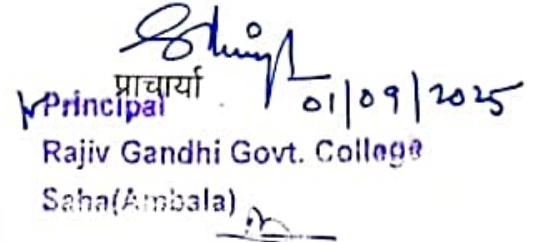 प्राचार्या
01/09/2025
Principal
Rajiv Gandhi Govt. College
Saha(Ambala)